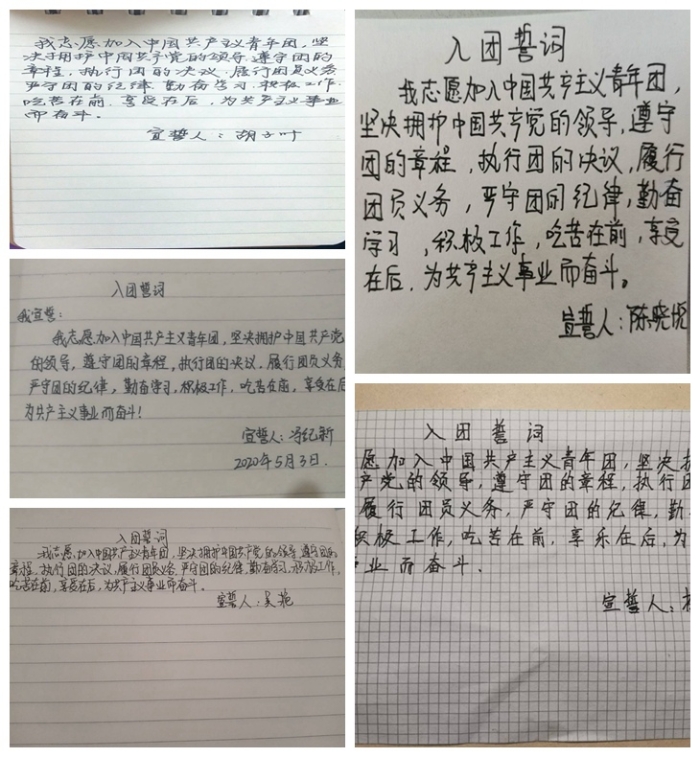 我志愿加入中国共产主义青年团，坚
决拥护中国共产党的领导，遵守团的
章程，执行团的决议，履行团员义务
严守团的纪律，勤奋学习，积极工作，
吃苦在前，享受在后，为共产主义事业
而奋斗。
宣誓人：胡子叶
入团誓词
我宣誓：
我志愿加入中国共产主义青年团，坚决拥护中国共产党
的领导，遵守团的章程，执行团的决议，履行团员义务，
严守团的纪律，勤奋学习，积极工作，吃苦在前，享受在后
为共产主义事业而奋斗！
宣誓人：纪新
2020年5月3日.
入团誓词
我志愿加入中国共产主义青年团，坚决拥护中国共产党的领导，遵守团的
章程，执行团的决议，履行团员义务，严守团的纪律，勤奋学习，积极工作，
吃苦在前，享受在后，为共产主义事业而奋斗。
宣誓人：吴艳
入团誓词
我志愿加入中国共产主义青年团，
坚决拥护中国共产党的领导，遵守
团的章程，执行团的决议，履行
团员义务，严守团的纪律，勤奋
学习，积极工作，吃苦在前，享受
在后，为共产主义事业而奋斗。
宣誓人：陈晓悦
入团誓词
愿加入中国共产主义青年团，坚决
产党的领导，遵守团的章程，执行团
履行团员义务，严守团的纪律，勤
极工作，吃苦在前，享乐在后，为
业而奋斗．
宣誓人：